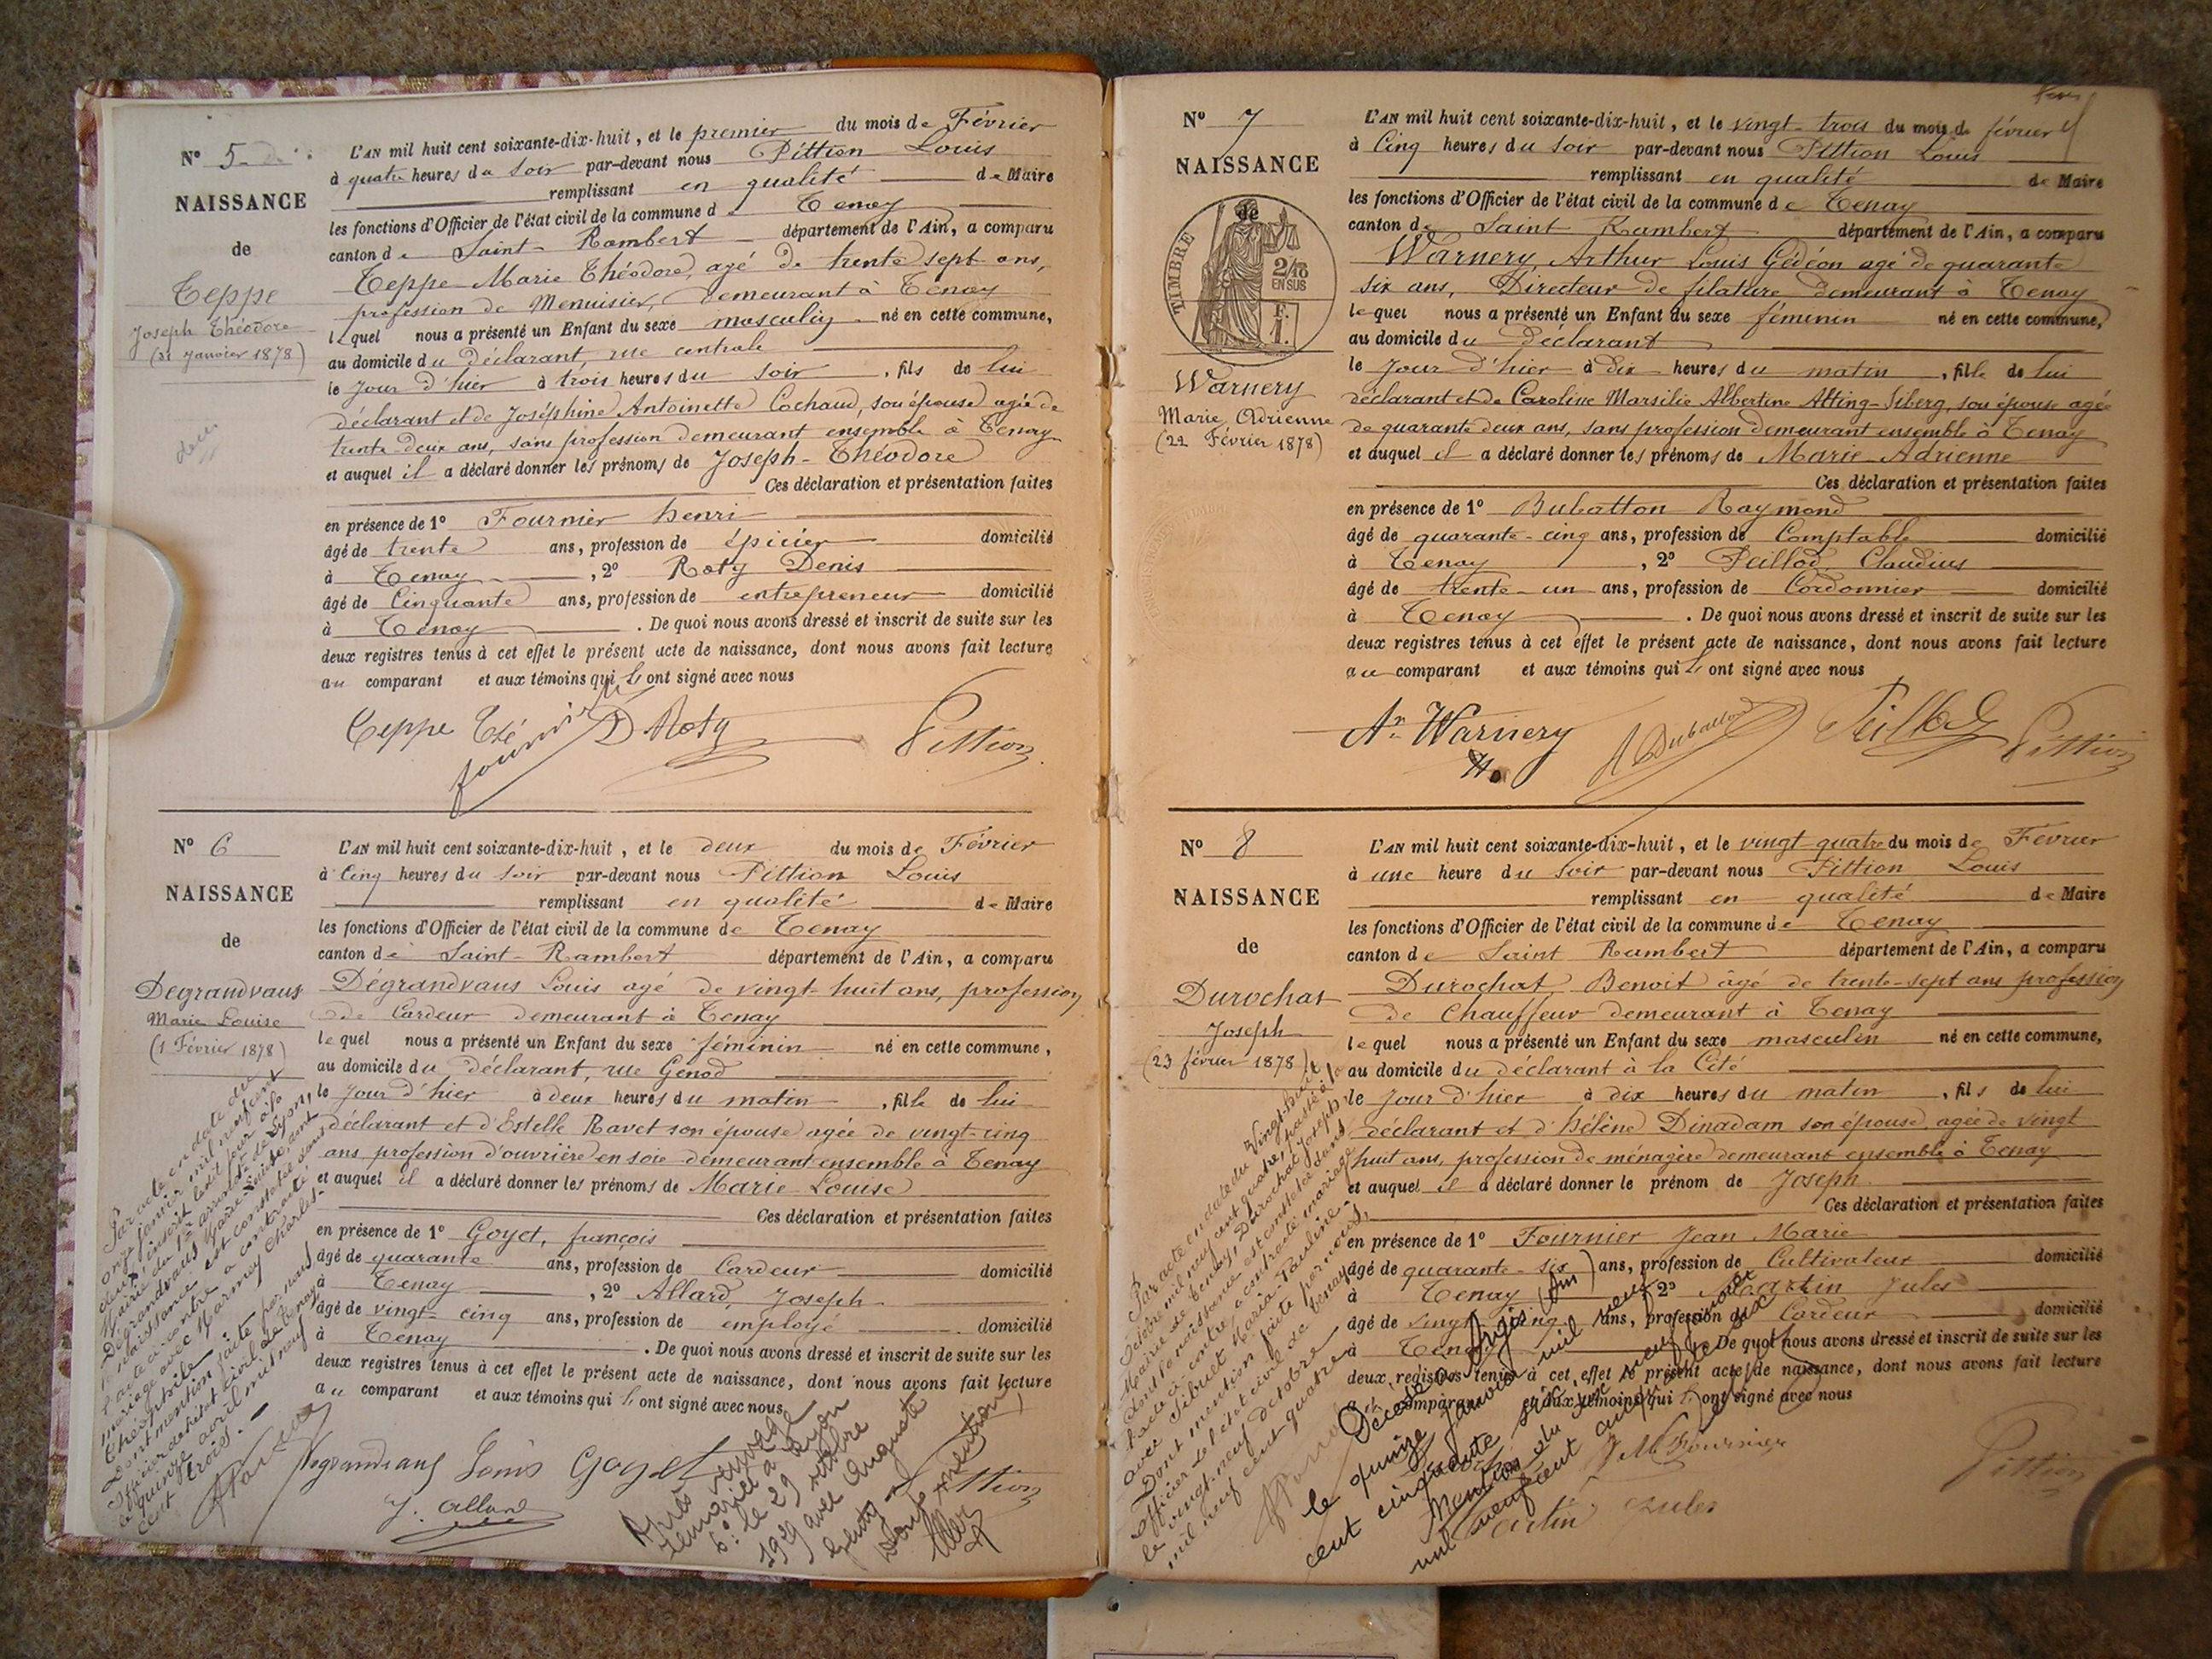 N° 5
NAISSANCE
de
Teppe
Joseph Théodore
(31 Janvier 1878)
L'AN mil huit cent soixante-dix-huit, et le premier du mois de Février
à quatre heures du soir par-devant nous Pittion Louis
remplissant en qualité de Maire
les fonctions d'Officier de l'état civil de la commune d Tenay
canton de Saint-Rambert département de l'Ain, a comparu
Teppe Marie Théodore, agé de trente sept ans,
profession de Menuisier, demeurant à Tenay
lequel nous a présenté un Enfant du sexe masculin né en cette commune,
au domicile du déclarant, rue centrale
le jour d'hier à trois heures du soir, fils de lui
déclarant et de Joséphine Antoinette Cochaud, son épouse agée de
trente deux ans, sans profession demeurant ensemble à Tenay
et auquel il a déclaré donner les prénoms de Joseph-Théodore
Ces déclaration et présentation faites
en présence de 1° Fournier henri
âgé de trente ans, profession de épicier domicilié
à Tenay, 2° Roty Denis
âgé de Cinquante ans, profession de entrepreneur domicilié
à Tenay. De quoi nous avons dressé et inscrit de suite sur les
deux registres tenus à cet effet le présent acte de naissance, dont nous avons fait lecture
au comparant et aux témoins qui ont signé avec nous
Teppe Thé fournier D Roty Pittion
N° 6
NAISSANCE
de
Degrandvaus
Marie Louise
(1 Février 1878)
L'AN mil huit cent soixante-dix-huit, et le deux du mois de Février
à Cinq heures du soir par-devant nous Pittion Louis
remplissant en qualité de Maire
les fonctions d'Officier de l'état civil de la commune de Tenay
canton de Saint-Rambert département de l'Ain, a comparu
Dégrandvaus Louis agé de vingt-huit ans, profession
de Cardeur demeurant à Tenay
lequel nous a présenté un Enfant du sexe féminin né en cette commune,
au domicile du déclarant, rue Genod
le jour d'hier à deux heures du matin, fille de lui
déclarant et d'Estelle Ravet son épouse agée de vingt-cinq
ans profession d'ouvrière en soie demeurant ensemble à Tenay
et auquel il a déclaré donner les prénoms de Marie Louise
Ces déclaration et présentation faites
en présence de 1° Goyet, françois
âgé de quarante ans, profession de Cardeur domicilié
à Tenay, 2° Allard, Joseph
âgé de vingt-cinq ans, profession de employé domicilié
à Tenay. De quoi nous avons dressé et inscrit de suite sur les
deux registres tenus à cet effet le présent acte de naissance, dont nous avons fait lecture
au comparant et aux témoins qui ont signé avec nous
Degrandvaus Louis Goyet Pittion
J. Allard
Par acte en date du
onze janvier mil neuf cent
deux, inscrit ledit jour à la
Mairie du 1er arrondt de Lyon,
Dégrandvaus Marie Louise, dont
la naissance est constatée dans
l'acte ci-contre a contracté
mariage avec Marmey Charles-
Théophile
Dont mention faite par nous
officier de l'état civil de Tenay
le quinze avril mil neuf
cent trois.
Après veuvage
remariée à Lyon
6e le 29 octobre
1929 avec Auguste
Dont mention
N° 7
NAISSANCE
de
TIMBRE
2/10
EN SUS
F.
1.
Warnery
Marie Adrienne
(22 Février 1878)
L'AN mil huit cent soixante-dix-huit, et le vingt-trois du mois de février
à Cinq heures du soir par-devant nous Pittion Louis
remplissant en qualité de Maire
les fonctions d'Officier de l'état civil de la commune de Tenay
canton de Saint Rambert département de l'Ain, a comparu
Warnery, Arthur Louis Gédéon agé de quarante
six ans, Directeur de filature demeurant à Tenay
lequel nous a présenté un Enfant du sexe féminin né en cette commune,
au domicile du Déclarant
le jour d'hier à dix heures du matin, fille de lui
déclarant et de Caroline Marsilie Albertine Alting-Siberg, son épouse agée
de quarante deux ans, sans profession demeurant ensemble à Tenay
et auquel il a déclaré donner les prénoms de Marie Adrienne
Ces déclaration et présentation faites
en présence de 1° Bubatton Raymond
âgé de quarante-cinq ans, profession de Comptable domicilié
à Tenay, 2° Peillod Claudius
âgé de trente-un ans, profession de Cordonnier domicilié
à Tenay. De quoi nous avons dressé et inscrit de suite sur les
deux registres tenus à cet effet le présent acte de naissance, dont nous avons fait lecture
au comparant et aux témoins qui ont signé avec nous
Ar Warnery Peillod Pittion
N° 8
NAISSANCE
de
Durochat
Joseph
(23 février 1878)
L'AN mil huit cent soixante-dix-huit, et le vingt quatre du mois de Février
à une heure du soir par-devant nous Pittion Louis
remplissant en qualité de Maire
les fonctions d'Officier de l'état civil de la commune de Tenay
canton de Saint Rambert département de l'Ain, a comparu
Durochat Benoit âgé de trente-sept ans profession
de Chauffeur demeurant à Tenay
lequel nous a présenté un Enfant du sexe masculin né en cette commune,
au domicile du déclarant à la Cité
le jour d'hier à dix heures du matin, fils de lui
déclarant et d'hélène Dinadam son épouse agée de vingt
huit ans, profession de ménagère demeurant ensemble à Tenay
et auquel il a déclaré donner le prénom de Joseph
Ces déclaration et présentation faites
en présence de 1° Fournier Jean Marie
âgé de quarante-six ans, profession de Cultivateur domicilié
à Tenay 2° Martin Jules
âgé de vingt-cinq ans, profession de Cardeur domicilié
à Tenay De quoi nous avons dressé et inscrit de suite sur les
deux registres tenus à cet effet le présent acte de naissance, dont nous avons fait lecture
au comparant et aux témoins qui ont signé avec nous
J M Fournier
Martin Jules Pittion
Par acte en date du vingt-huit
octobre mil neuf cent quatre, passé à la
Mairie de Tenay, Durochat Joseph,
dont la naissance est constatée dans
l'acte ci-contre, a contracté mariage
avec Sibuet Maria-Pauline
Dont mention faite par nous,
officier de l'état civil de Tenay
le vingt-neuf octobre
mil neuf cent quatre
Décédé à Argis (Ain)
le quinze janvier mil neuf
cent cinquante
Mention du
mil neuf cent cinquante